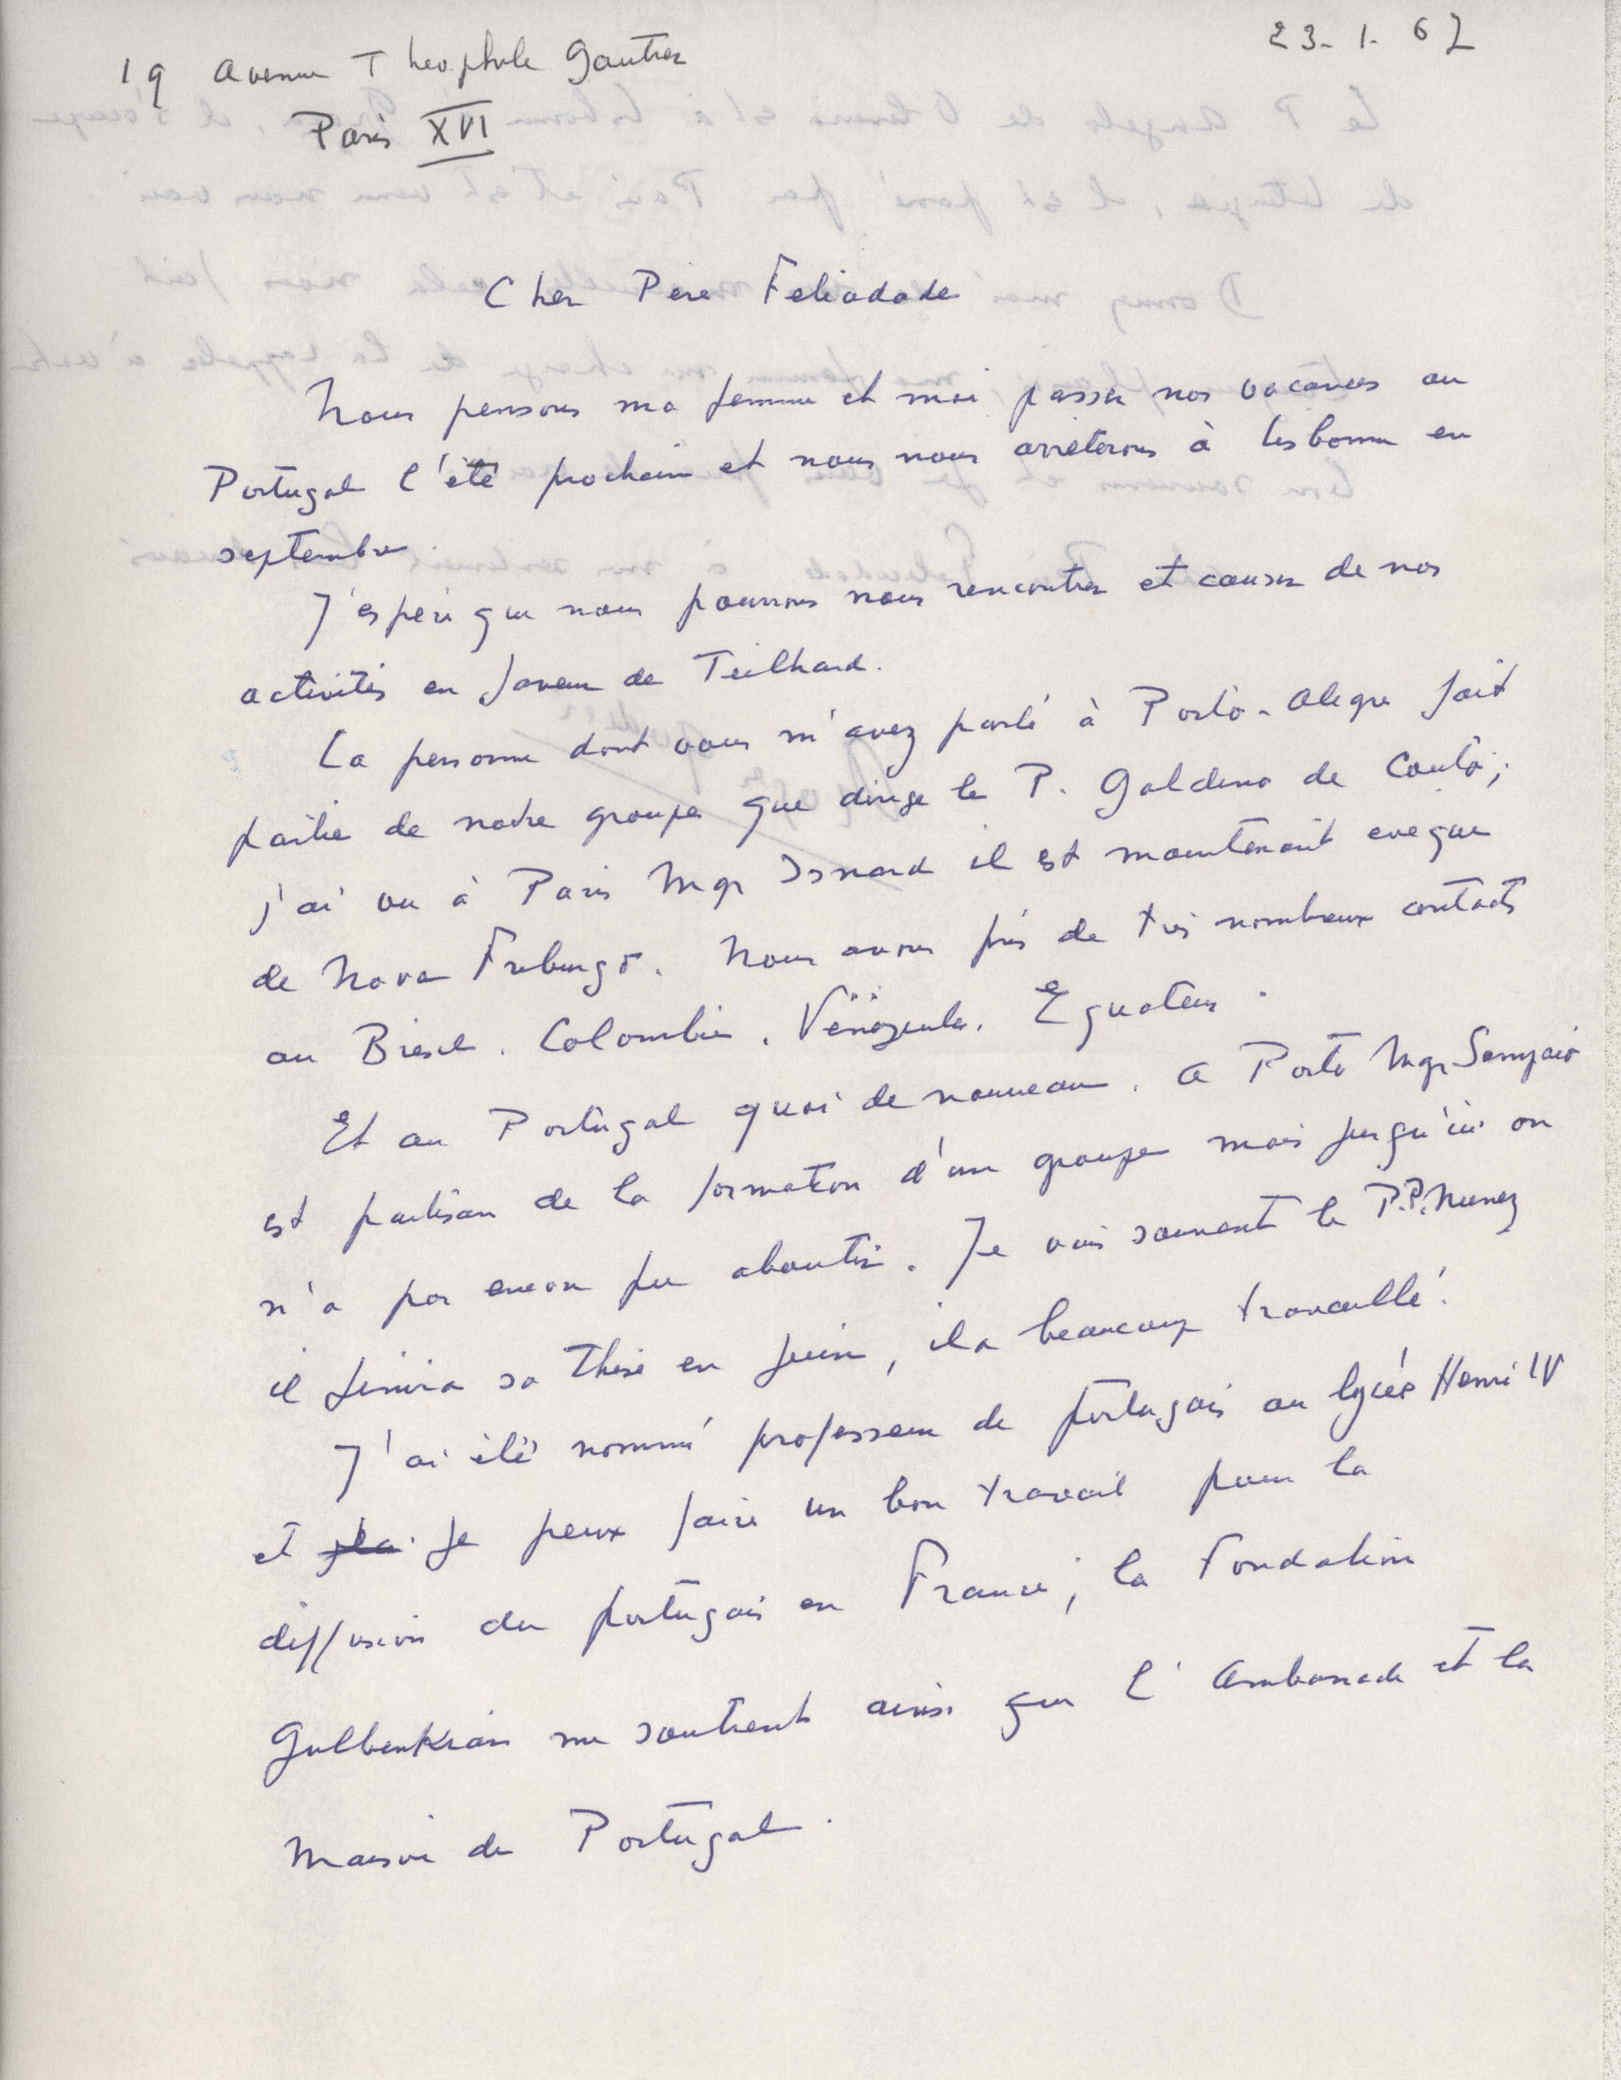 19 Avenue Théophile Gautier
23-1-62
Paris XVI
Cher Père Felicidade
Nous pensons ma femme et moi passer nos vacances au
Portugal l'été prochain et nous nous arrêterons à Lisbonne en
septembre.
J'espère que nous pourrons nous rencontrer et causer de nos
activités en faveur de Teilhard.
La personne dont vous m'avez parlé à Porto-Alegre fait
partie de notre groupe que dirige le P. Galdino de Couto;
j'ai vu à Paris Mgr Isnard il est maintenant eveque
de Nova Friburgo. Nous avons pris de très nombreux contacts
au Brésil. Colombie. Vénézuela. Equateur.
Et au Portugal quoi de nouveau. A Porto Mgr Sampaio
est partisan de la formation d'un groupe mais jusqu'ici on
n'a pas encore pu aboutir. Je vois souvent le P.P. Nunez
il finira sa thèse en juin, il a beaucoup travaillé.
J'ai été nommé professeur de portugais au lycée Henri IV
et je peux faire un bon travail pour la
diffusion du portugais en France; la Fondation
Gulbenkian me soutient ainsi que l'Ambassade et la
Maison du Portugal.